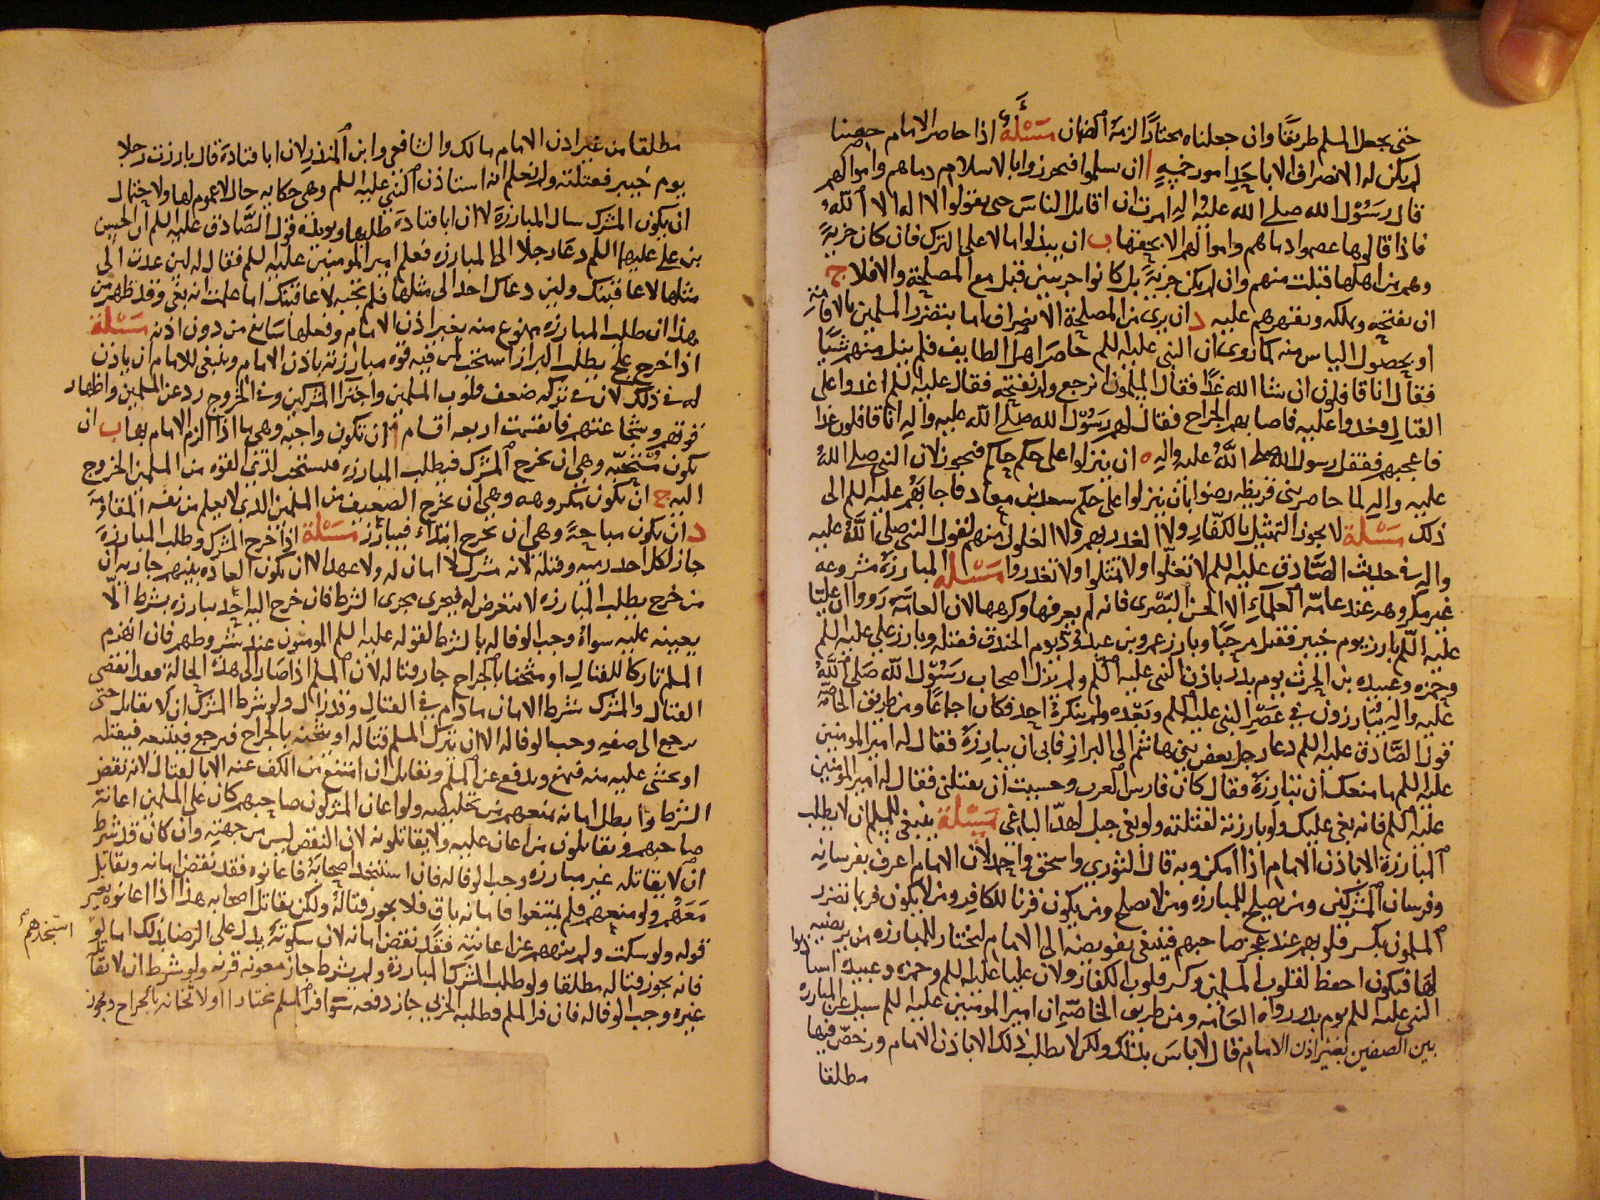 حتى يجعل المسلم طريقا وان جعلناه مختارا لزمه الضمان مسئلة اذا حاصر الامام حصنا
لم يكن له الانصراف الا باحد امور خمسة ا ان يسلموا فيحرزوا بالاسلام دماءهم واموالهم
قال رسول الله صلى الله عليه واله امرت ان اقاتل الناس حتى يقولوا لا اله الا الله
فاذا قالوها عصموا دماءهم واموالهم الا بحقها ب ان يبذلوا مالا على الترك فان كان جزية
وهم من اهلها قبلت منهم وان لم يكن جزية بل كانوا حربيين قبل مع المصلحة والا فلا ج
ان يفتحه ويملكه ويقهرهم عليه د ان يرى من المصلحة الانصراف اما بتضرر المسلمين بالاقامة
او بحصول الياس منه كما روى ان النبي عليه السلم حاصر اهل الطايف فلم ينل منهم شيئا
فقال انا قافلون ان شا الله غدا فقال المسلمون انرجع ولم نفتحه فقال عليه السلم اغدوا على
القتال فغدوا عليه فاصابهم الجراح فقال لهم رسول الله صلى الله عليه واله انا قافلون غدا
فاعجبهم فقفل رسول الله صلى الله عليه واله ه ان ينزلوا على حكم حاكم فيجوز لان النبي صلى الله
عليه واله لما حاصر بني قريظه رضوا بان ينزلوا على حكم سعد بن معاد فاجابهم عليه السلم الى
ذلك مسئلة لا يجوز التمثيل بالكفار ولا الغدر بهم ولا الغلول منهم لقول النبي صلى الله عليه
واله في حديث الصادق عليه السلم لا تغلوا ولا تمثلوا ولا تغدروا مسئلة المبارزة مشروعة
غير مكروهه عند عامة العلماء الا الحسن البصري فانه لم يعرفها وكرهها لان العامة رووا ان عليا
عليه السلم بارز يوم خيبر فقتل مرحبا وبارز عمرو بن عبد ود يوم الخندق فقتله وبارز علي عليه السلم
وحمزه وعبيده بن الحرث يوم بدر باذن النبي عليه السلم ولم يزل اصحاب رسول الله صلى الله
عليه واله يتبارزون في عصر النبي عليه السلم وبعده ولم ينكره احد فكان اجماعا ومن طريق الخاصة
قول الصادق عليه السلم دعا رجل بعض بني هاشم الى البراز فابى ان يبارزه فقال له امير المومنين
عليه السلم ما منعك ان تبارزه فقال كان فارس العرب وحسبت ان يقتلني فقال له امير المومنين
عليه السلم فانه بغى عليك ولو بارزته لقتلته ولو بغى جبل لهد الباغي مسئلة ينبغي للمسلم ان لا يطلب
المبارزة الا باذن الامام اذا امكن وبه قال الثوري واسحق واحمد لان الامام اعرف بفرسانه
وفرسان المشركين ومن يصلح للمبارزه ومن لا يصلح ومن يكون قرنا للكافر ومن لا يكون فربما تضرر
المسلمون بكسر قلوبهم عند عجز صاحبهم فينبغي تفويضه الى الامام ليختار للمبارزه من يرتضيه
لها فيكون احفظ لقلوب المسلمين وكسر قلوب الكفار ولان عليا عليه السلم وحمزه وعبيده استاذنوا
النبي عليه السلم يوم بدر رواه العامه ومن طريق الخاصة ان امير المومنين عليه السلم سيل عن المبارزه
بين الصفين بغير اذن الامام قال لا باس بذلك ولكن لا يطلب ذلك الا باذن الامام ورخص فيها
مطلقا
مطلقا من غير اذن الامام مالك والشافعي وابن المنذر لان ابا قتادة قال بارزت رجلا
يوم خيبر فقتلته ولم نعلم انه استاذن النبي عليه السلم وهي حكايه حال لا عموم لها ولا احتمال
ان يكون المشرك سال المبارزة لا ان ابا قتادة طلبها ويويده قول الصادق عليه السلم ان الحسين
بن علي عليهما السلم دعا رجلا الى المبارزه فعلم امير المومنين عليه السلم فقال له لين عدت الى
مثلها لاعاقبنك ولين دعاك احد الى مثلها فلم تجبه لاعاقبنك اما علمت انه بغى وقد ظهر من
هذا ان طلب المبارزه ممنوع منه بغير اذن الامام وفعلها سايغ من دون اذنه مسئلة
اذا خرج علج يطلب البراز استحب لمن فيه قوة مبارزته باذن الامام وينبغي للامام ان ياذن
له في ذلك لان في تركه ضعف قلوب المسلمين واجترا المشركين وفي الخروج رد عن المسلمين واظهار
قوتهم وشجاعتهم فانقسمت اربعه اقسام ا ان تكون واجبه وهي ما اذا الزم الامام بها ب ان
تكون مستحبه وهي ان يخرج المشرك فيطلب المبارزه فيستحب لذي القوة من المسلمين الخروج
اليه ج ان تكون مكروهه وهي ان يخرج الضعيف من المسلمين الذي لا يعلم من نفسه المقاومة
د ان يكون مباحة وهي ان يخرج ابتداء فيبارز مسئلة اذا خرج المشرك وطلب المبارزة
جاز لكل احد رميه وقتله لانه مشرك لا امان له ولا عهد الا ان يكون العاده بينهم جاريه ان
من خرج يطلب المبارزه لا يتعرض له فيجري مجرى الشرط فان خرج اليه احد يبارزه بشرط الا
يعينه عليه سواه وجب الوفا له بالشرط لقوله عليه السلم المومنون عند شروطهم فان انهزم
المسلم تاركا للقتال او مثخنا بالجراح جاز قتاله لان المسلم اذا صار الى هذه الحالة فقد انقضى
القتال والمشرك شرط الامان ما دام في القتال وقد زال ولو شرط المشرك ان لا يقاتل حتى
يرجع الى صفه وجب الوفا له الا ان يترك المسلم قتاله او يثخنه بالجراح فيرجع فيتبعه فيقتله
او يخشى عليه منه فيمنع ويدفع عن المسلم ويقاتل ان امتنع من الكف عنه الا بالقتال لانه نقض
الشرط وابطل امانه بمنعهم من تخليصه ولو اعان المشركون صاحبهم كان على المسلمين اعانة
صاحبهم ويقاتلون من اعان عليه ولا يقاتلونه لان النقض ليس من جهته وان كان قد شرط
ان لا يقاتله غير مبارزه وجب الوفا له فان استنجد اصحابه فاعانوه فقد نقض امانه ويقاتل
معهم ولو منعهم فلم يمتنعوا فامانه باق فلا يجوز قتاله ولكن يقاتل اصحابه هذا اذا اعانوه بغير
قوله ولو سكت ولم ينههم عن اعانته فقد نقض امانه لان سكوته يدل على الرضا بذلك اما لو
استنجدهم
فانه يجوز قتاله مطلقا ولو طلب المشرك المبارزة ولم يشرط جاز معونه قرنه ولو شرط ان لا يقاتله
غيره وجب الوفا له فان فر المسلم فطلبه الحربي جاز دفعه سوا فر المسلم مختارا او لاثخانه بالجراح ويجوز